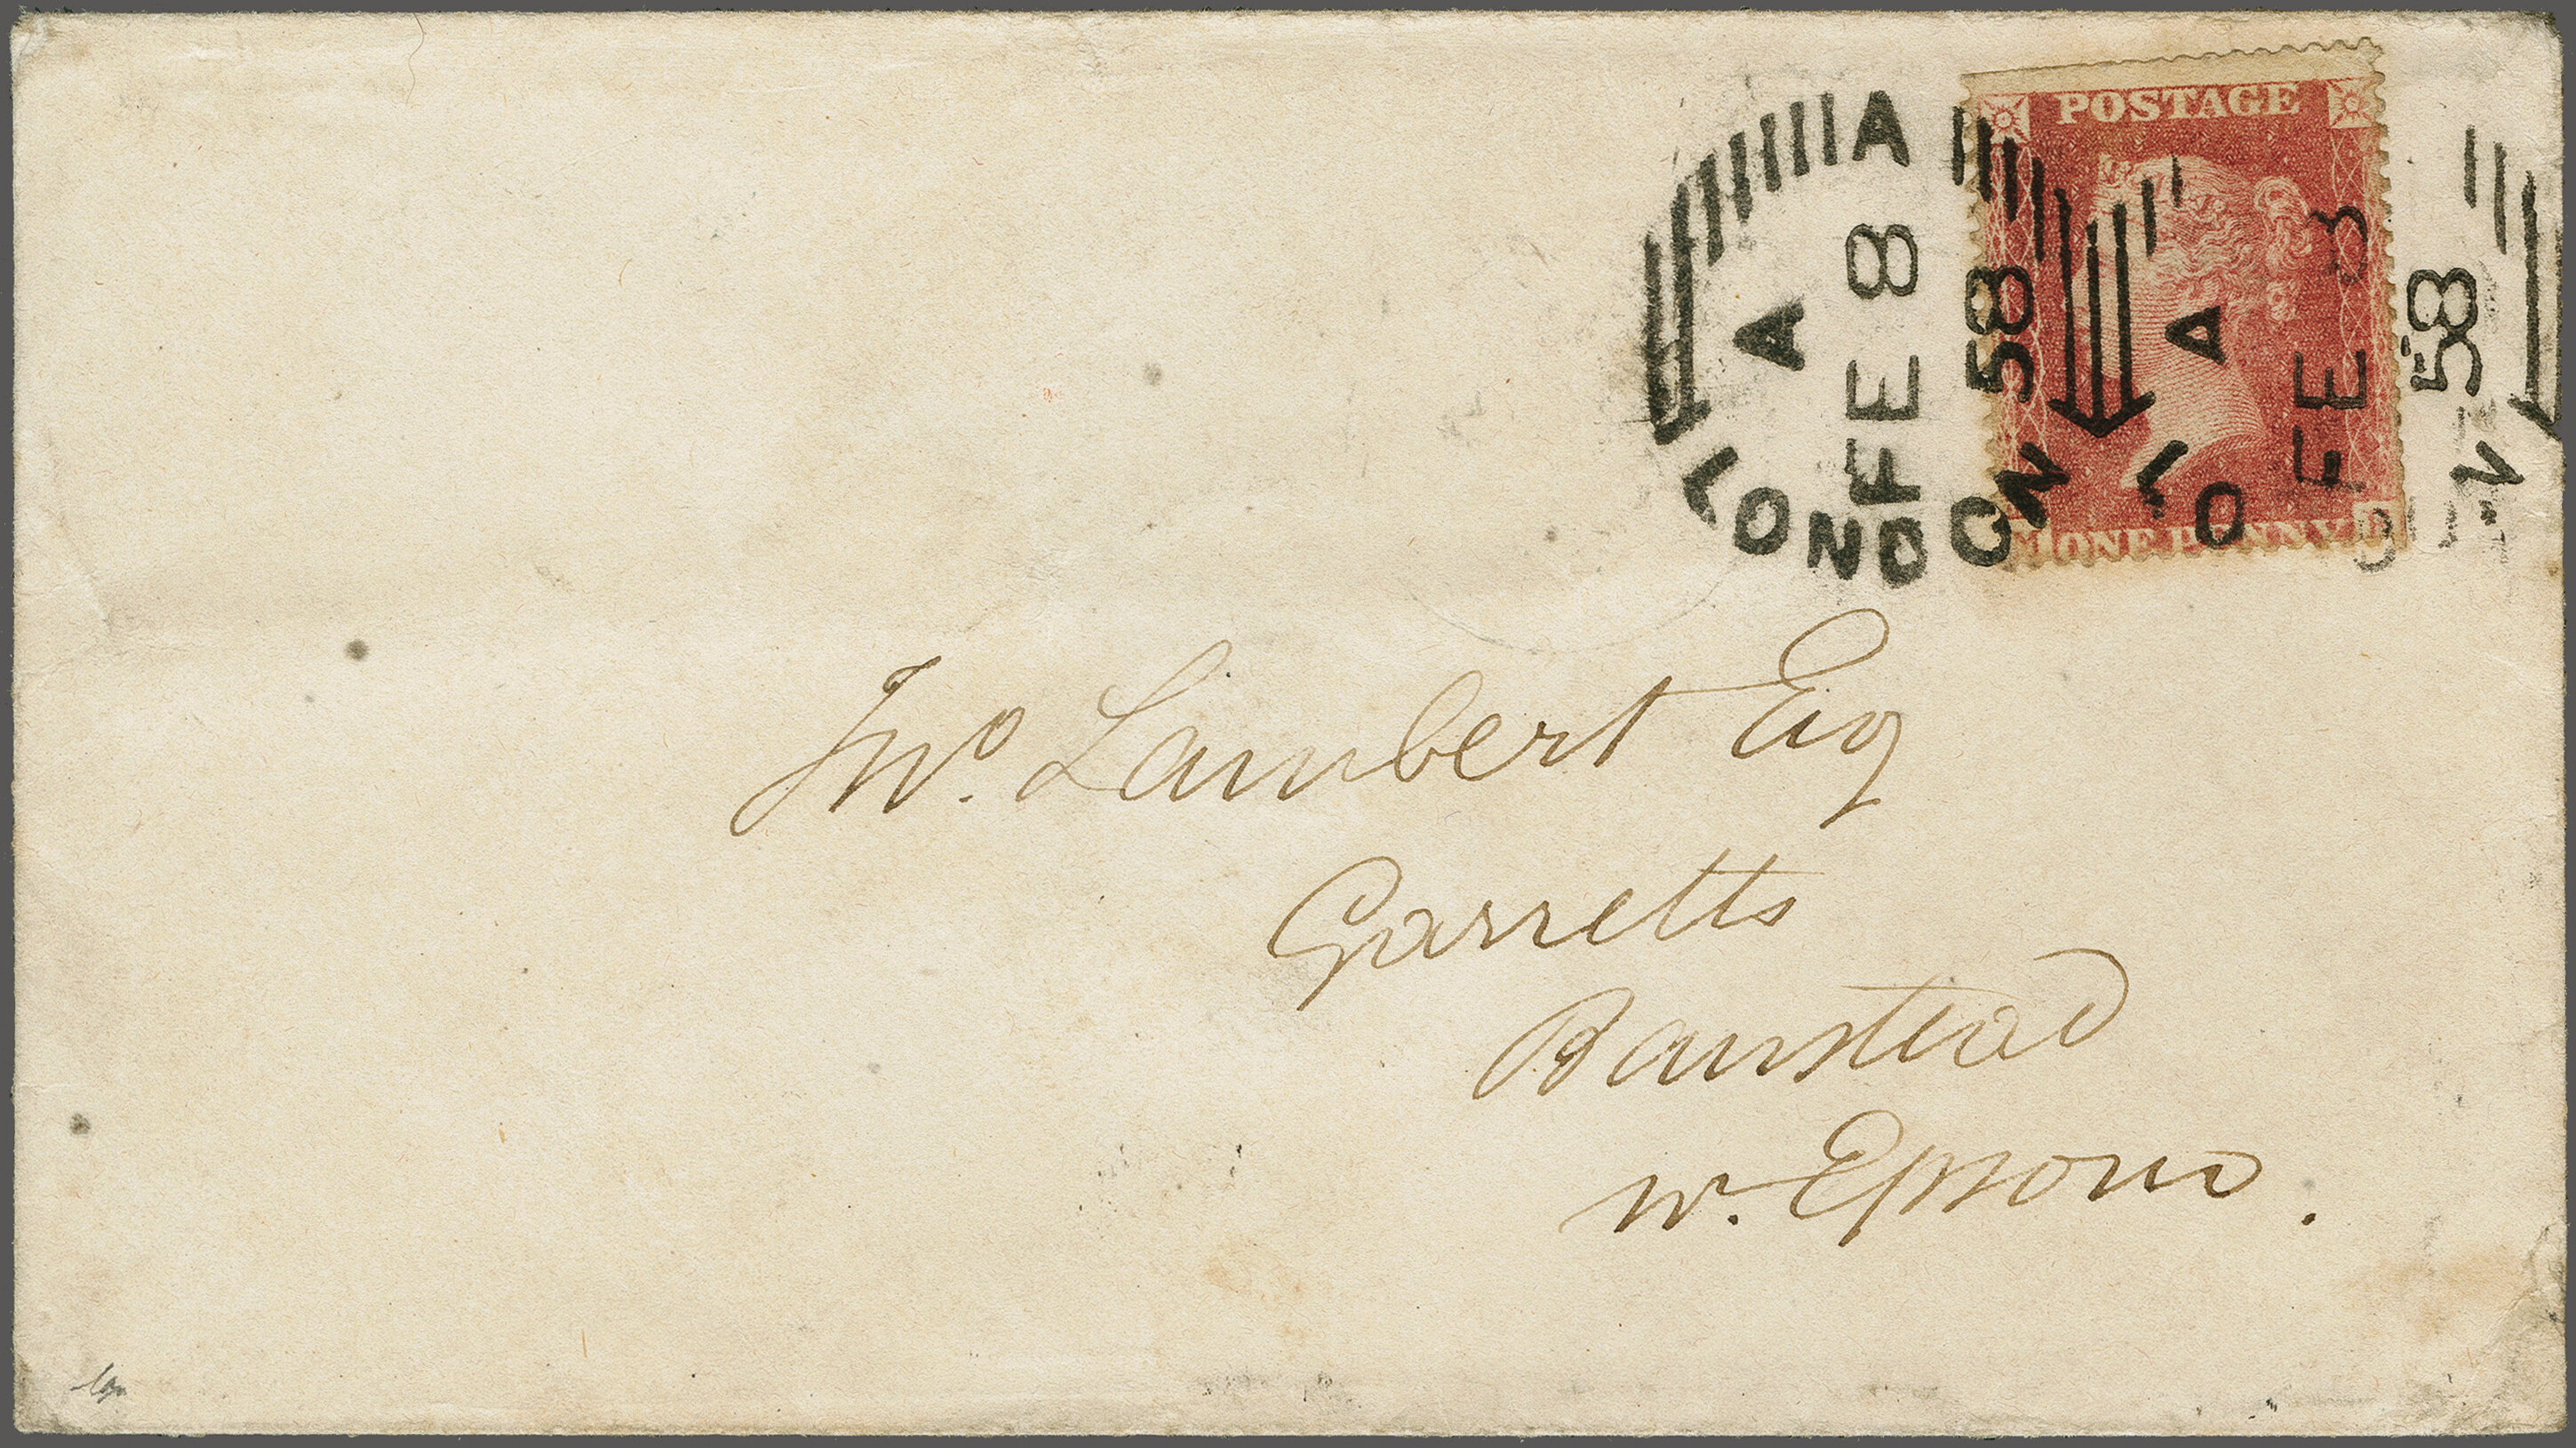 POSTAGE
ONE PENNY
A
A
FE 8
58
LONDON
A
FE 8
58
LO
N
Jno. Lambert Esq
Garretts
Banstead
nr. Epsom.